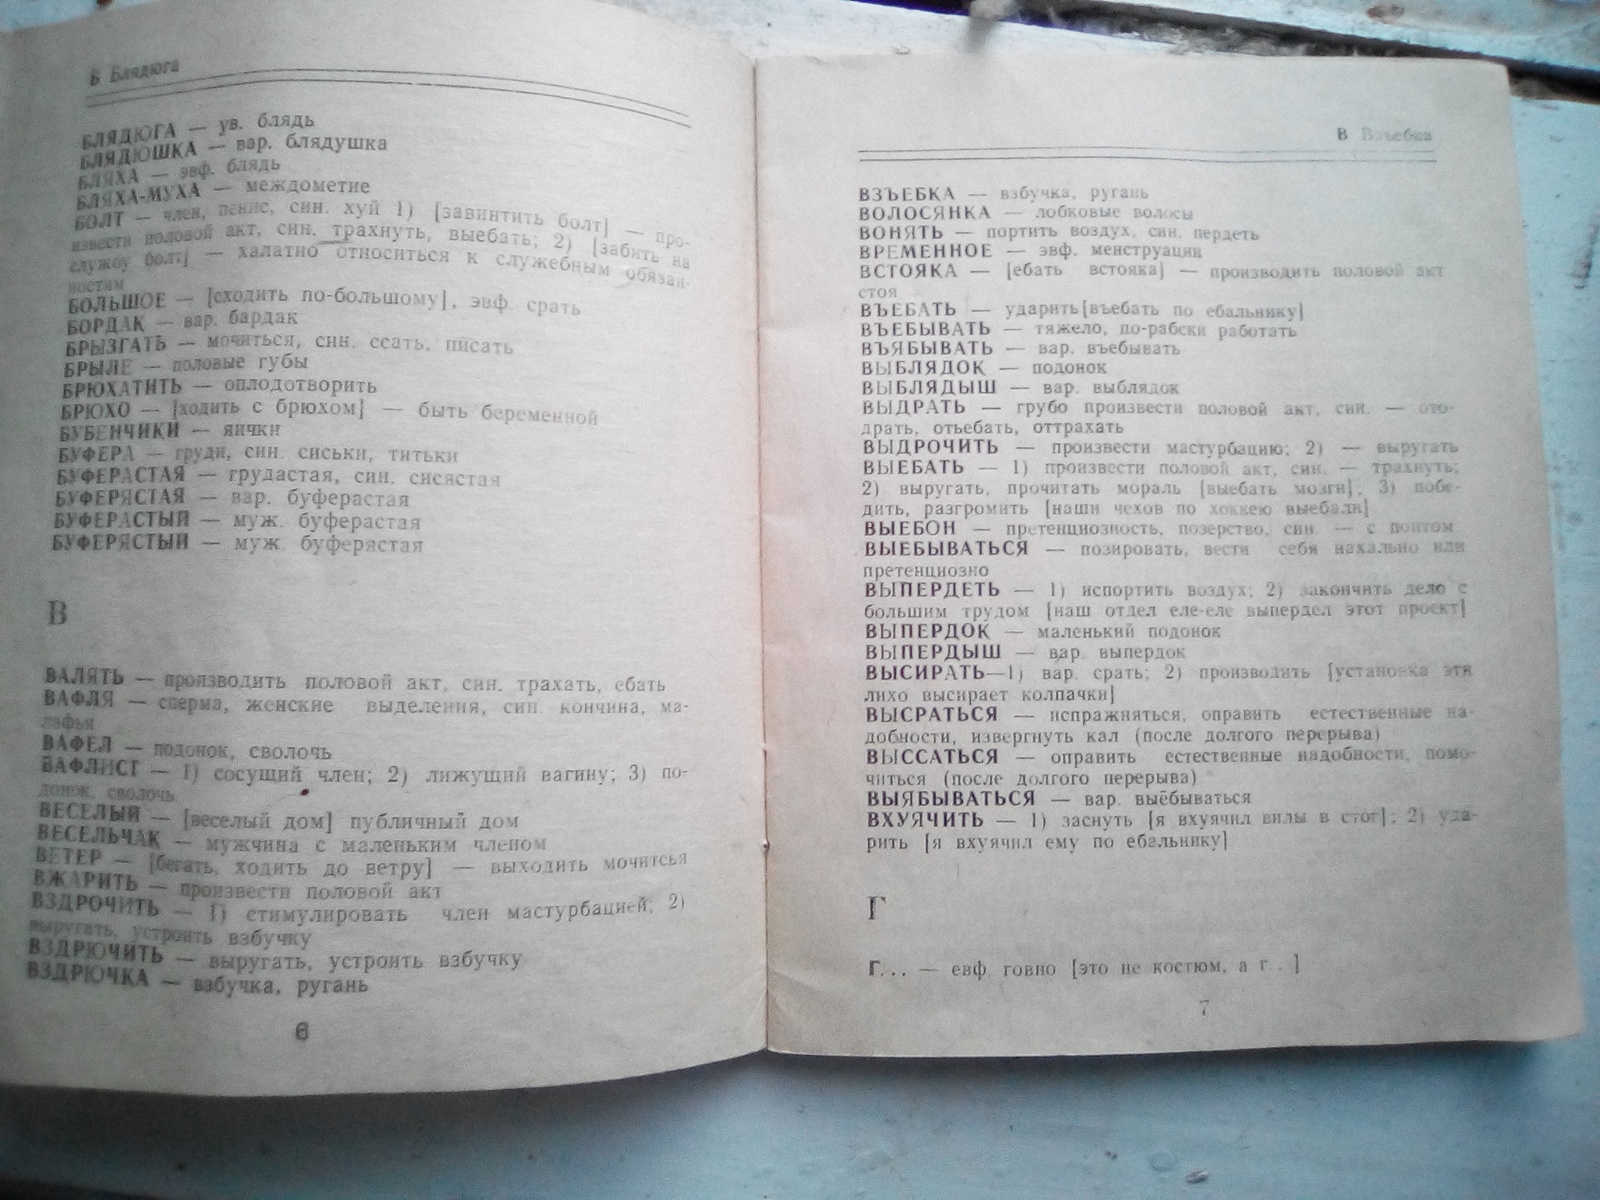 Б Блядюга
БЛЯДЮГА — ув. блядь
БЛЯДЮШКА — вар. блядушка
БЛЯХА — эвф. блядь
БЛЯХА-МУХА — междометие
БОЛТ — член, пенис, син. хуй 1) [завинтить болт] — про-
извести половой акт, син. трахнуть, выебать; 2) [забить на
службу болт] — халатно относиться к служебным обязан-
ностям
БОЛЬШОЕ — [сходить по-большому], эвф. срать
БОРДАК — вар. бардак
БРЫЗГАТЬ — мочиться, син. ссать, писать
БРЫЛЕ — половые губы
БРЮХАТИТЬ — оплодотворить
БРЮХО — [ходить с брюхом] — быть беременной
БУБЕНЧИКИ — яички
БУФЕРА — груди, син. сиськи, титьки
БУФЕРАСТАЯ — грудастая, син. сисястая
БУФЕРЯСТАЯ — вар. буферастая
БУФЕРАСТЫЙ — муж. буферастая
БУФЕРЯСТЫЙ — муж. буферястая
В
ВАЛЯТЬ — производить половой акт, син. трахать, ебать
ВАФЛЯ — сперма, женские выделения, син. кончина, ма-
лафья
ВАФЕЛ — подонок, сволочь
ВАФЛИСТ — 1) сосущий член; 2) лижущий вагину; 3) по-
донок, сволочь
ВЕСЕЛЫЙ — [веселый дом] публичный дом
ВЕСЕЛЬЧАК — мужчина с маленьким членом
ВЕТЕР — [бегать, ходить до ветру] — выходить мочиться
ВЖАРИТЬ — произвести половой акт
ВЗДРОЧИТЬ — 1) стимулировать член мастурбацией; 2)
выругать, устроить взбучку
ВЗДРЮЧИТЬ — выругать, устроить взбучку
ВЗДРЮЧКА — взбучка, ругань
6
В Взъебка
ВЗЪЕБКА — взбучка, ругань
ВОЛОСЯНКА — лобковые волосы
ВОНЯТЬ — портить воздух, син. пердеть
ВРЕМЕННОЕ — эвф. менструации
ВСТОЯКА — [ебать встояка] — производить половой акт
стоя
ВЪЕБАТЬ — ударить[въебать по ебальнику]
ВЪЕБЫВАТЬ — тяжело, по-рабски работать
ВЪЯБЫВАТЬ — вар. въебывать
ВЫБЛЯДОК — подонок
ВЫБЛЯДЫШ — вар. выблядок
ВЫДРАТЬ — грубо произвести половой акт, син. — ото-
драть, отъебать, оттрахать
ВЫДРОЧИТЬ — произвести мастурбацию; 2) — выругать
ВЫЕБАТЬ — 1) произвести половой акт, син. — трахнуть;
2) выругать, прочитать мораль [выебать мозги]; 3) побе-
дить, разгромить [наши чехов по хоккею выебали]
ВЫЕБОН — претенциозность, позерство, син. — с понтом
ВЫЕБЫВАТЬСЯ — позировать, вести себя нахально или
претенциозно
ВЫПЕРДЕТЬ — 1) испортить воздух; 2) закончить дело с
большим трудом [наш отдел еле-еле выпердел этот проект]
ВЫПЕРДОК — маленький подонок
ВЫПЕРДЫШ — вар. выпердок
ВЫСИРАТЬ—1) вар. срать; 2) производить [установка эти
лихо высирает колпачки]
ВЫСРАТЬСЯ — испражняться, оправить естественные на-
добности, извергнуть кал (после долгого перерыва)
ВЫССАТЬСЯ — оправить естественные надобности, помо-
читься (после долгого перерыва)
ВЫЯБЫВАТЬСЯ — вар. выёбываться
ВХУЯЧИТЬ — 1) заснуть [я вхуячил вилы в стог]; 2) уда-
рить [я вхуячил ему по ебальнику]
Г
Г... — евф. говно [это не костюм, а г . .]
7